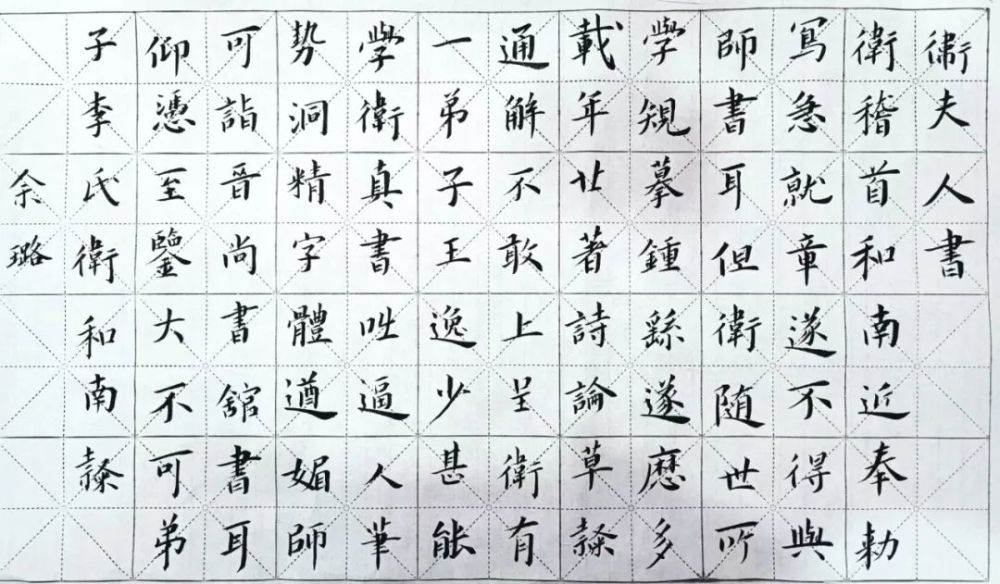 衛夫人書
衛稽首和南近奉勅
寫急就章遂不得與
師書耳但衛随世所
學規摹鍾繇遂歷多
載年廿著詩論草隸
通解不敢上呈衛有
一弟子王逸少甚能
學衛真書咄逼人筆
勢洞精字體遒媚師
可詣晉尚書館書耳
仰憑至鑒大不可弟
子李氏衛和南隸
余璐